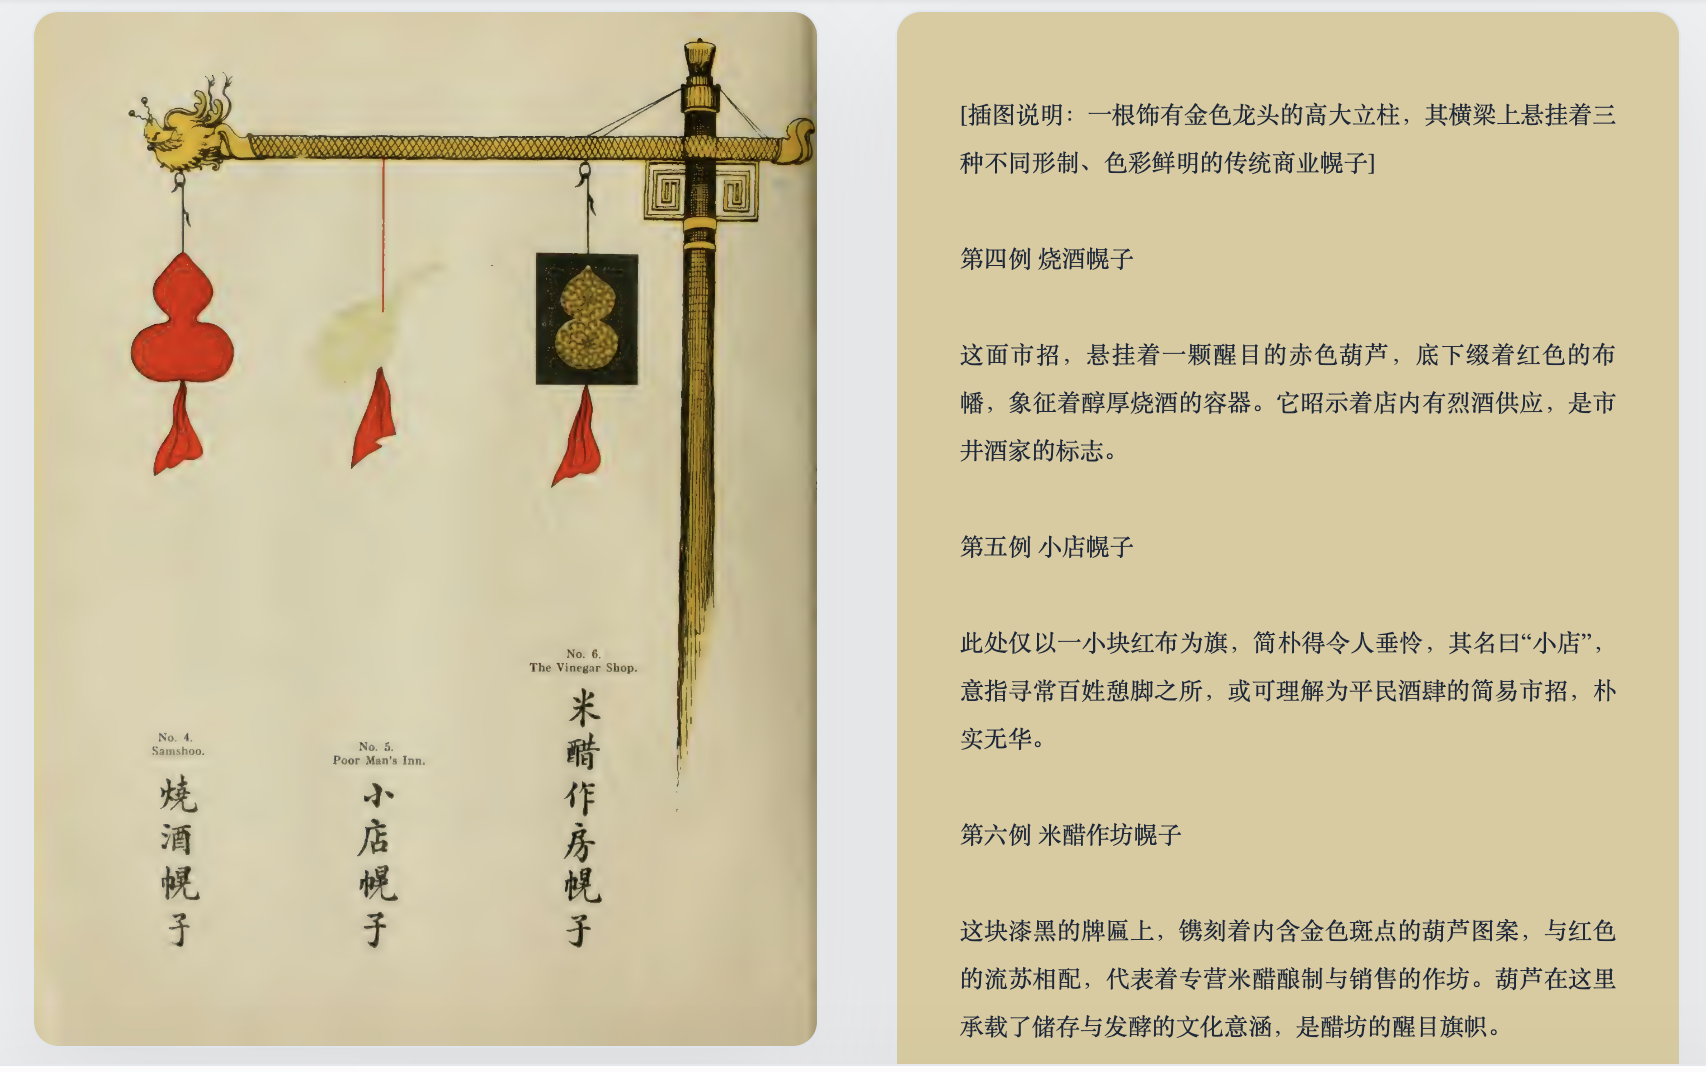 No. 4.
Samshoo.
燒酒幌子
No. 5.
Poor Man's Inn.
小店幌子
No. 6.
The Vinegar Shop.
米醋作房幌子
[插图说明：一根饰有金色龙头的高大立柱，其横梁上悬挂着三
种不同形制、色彩鲜明的传统商业幌子]
第四例 烧酒幌子
这面市招，悬挂着一颗醒目的赤色葫芦，底下缀着红色的布
幡，象征着醇厚烧酒的容器。它昭示着店内有烈酒供应，是市
井酒家的标志。
第五例 小店幌子
此处仅以一小块红布为旗，简朴得令人垂怜，其名曰“小店”，
意指寻常百姓憩脚之所，或可理解为平民酒肆的简易市招，朴
实无华。
第六例 米醋作坊幌子
这块漆黑的牌匾上，镌刻着内含金色斑点的葫芦图案，与红色
的流苏相配，代表着专营米醋酿制与销售的作坊。葫芦在这里
承载了储存与发酵的文化意涵，是醋坊的醒目旗帜。